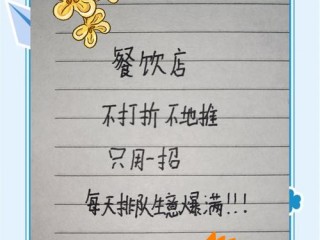 餐饮店
不打折不地推
只用一招
每天排队生意爆满!!!